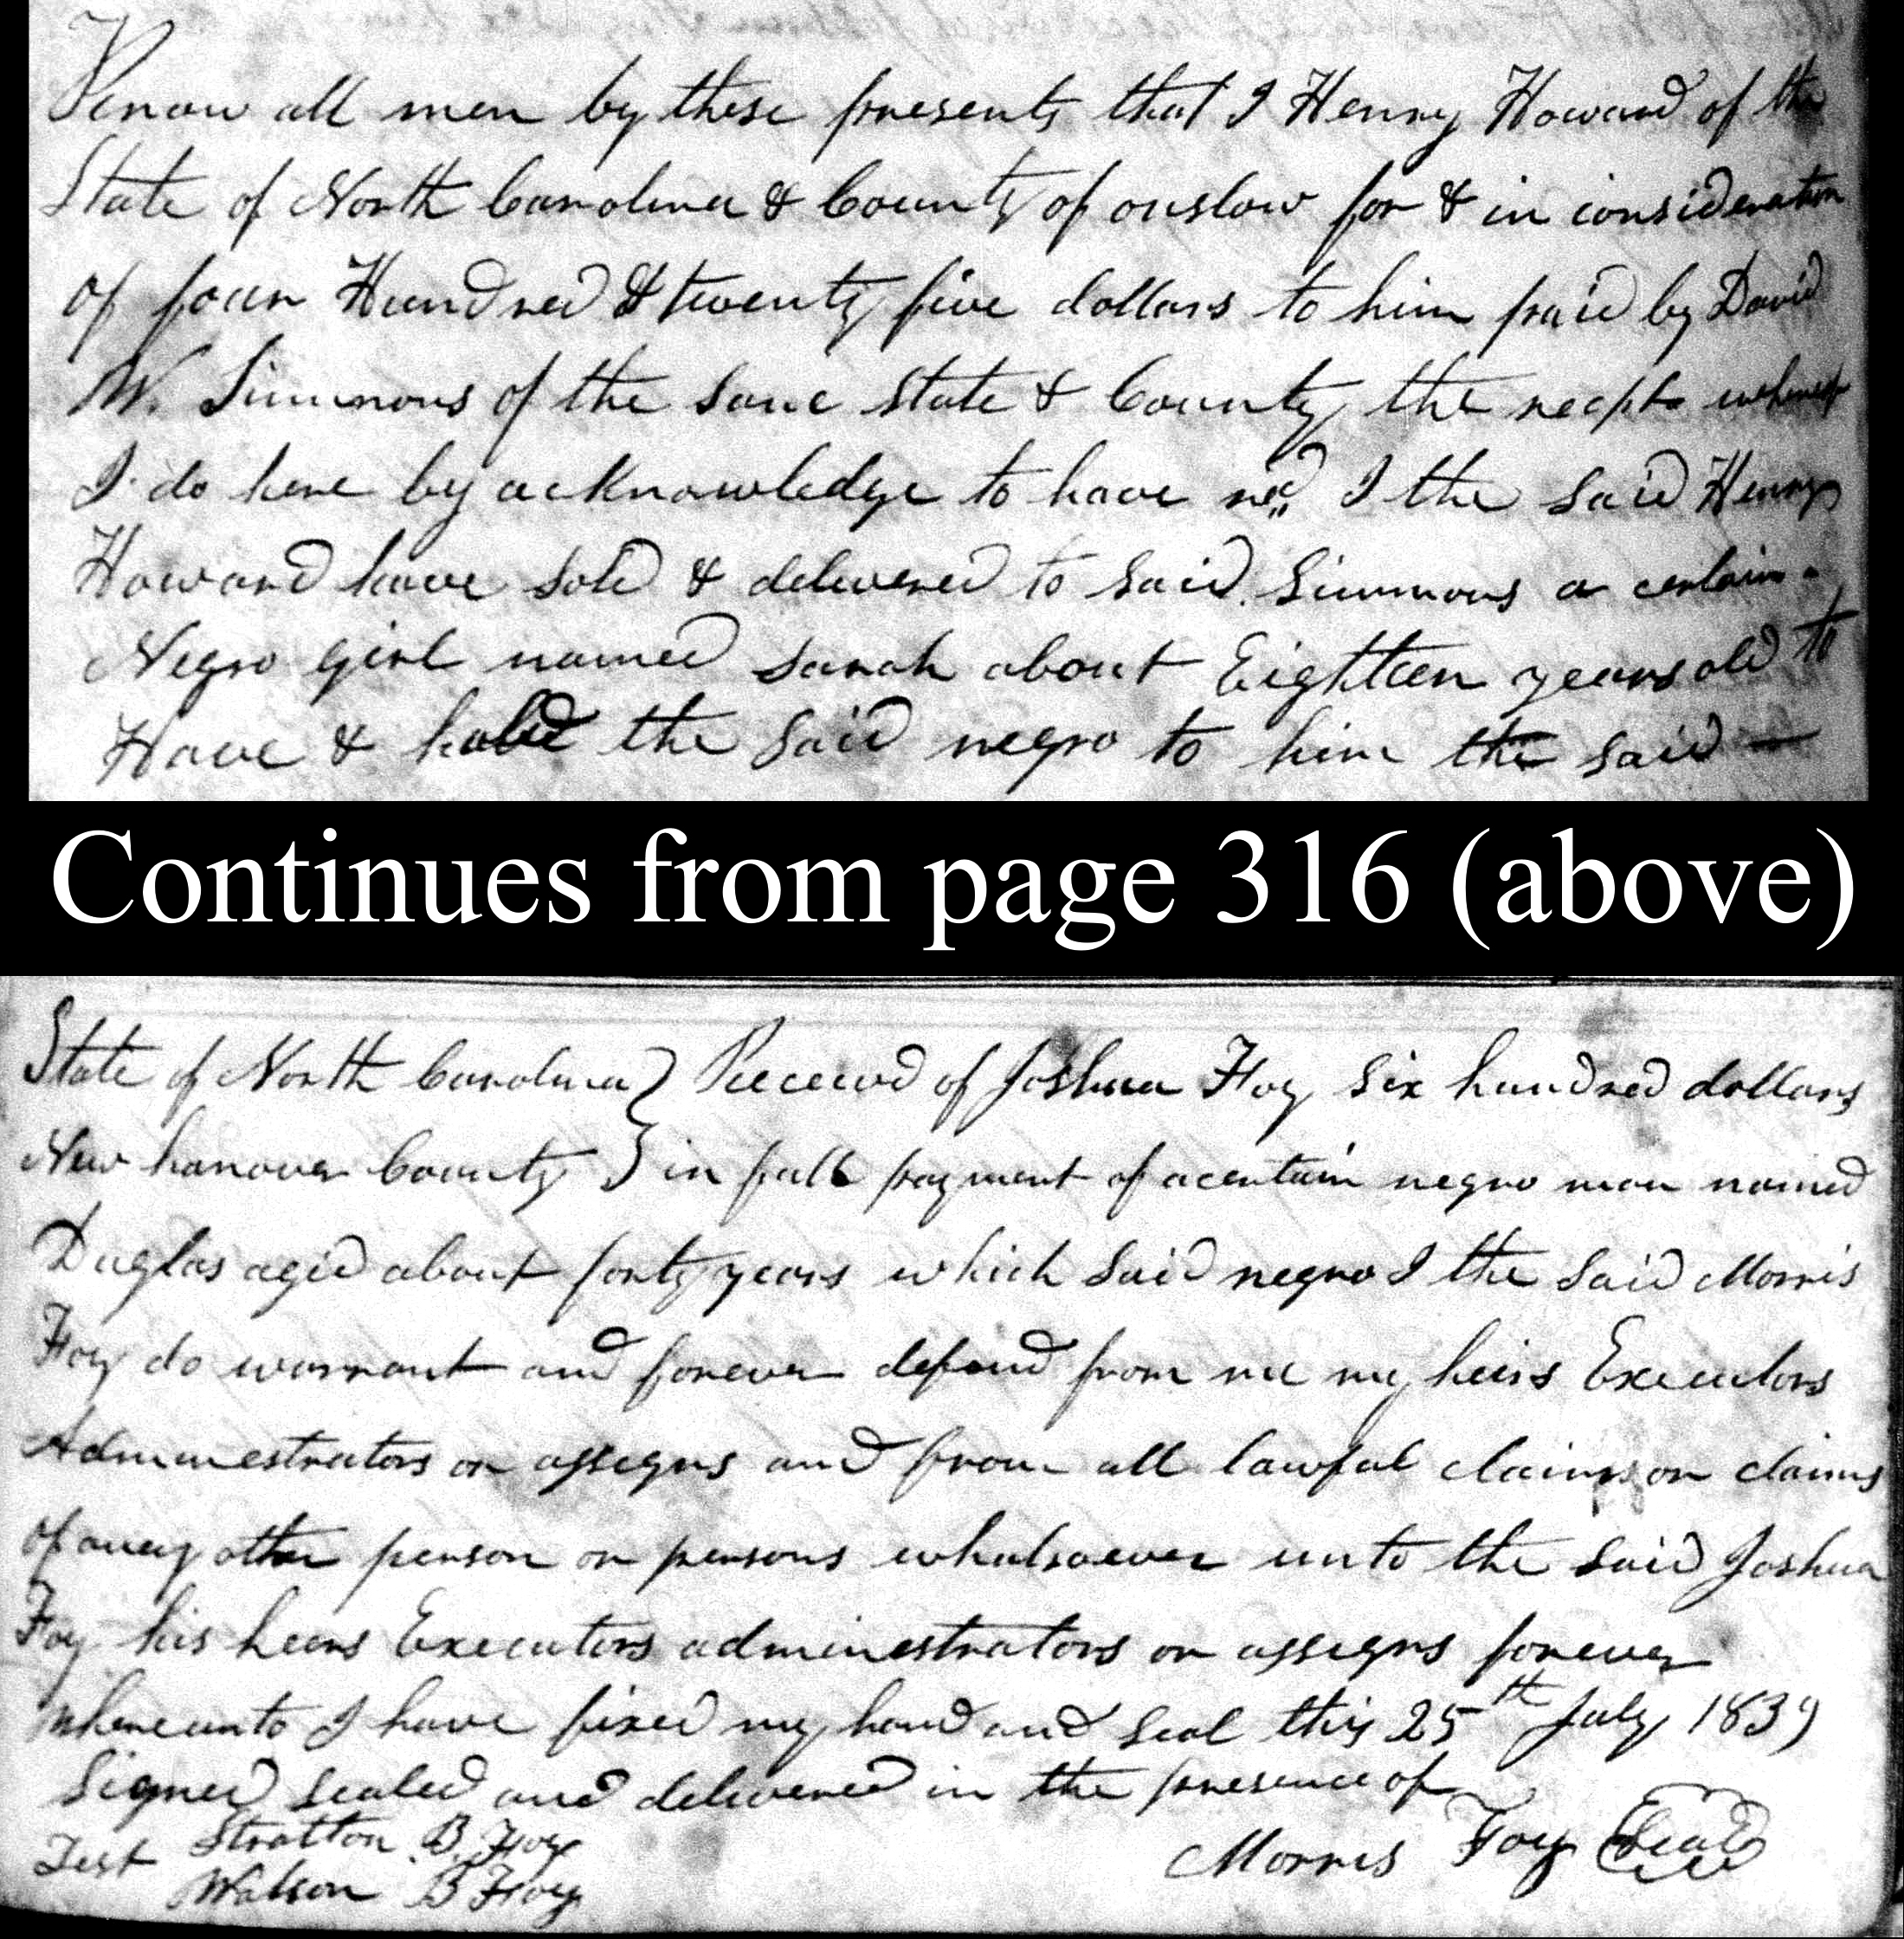 Know all men by these presents that I Henry Howard of the
State of North Carolina & County of onslow for & in consideration
of four Hundred & twenty five dollars to him paid by David
W. Simmons of the same state & County the recpt whereof
I do here by acknowledge to have recd I the said Henry
Howard have sold & delivered to said Simmons a certain
Negro girl named Sarah about Eighteen years old to
Have & hold the said negro to him the said —
Continues from page 316 (above)
State of North Carolina } Received of Joshua Foy six hundred dollars
New hanover County } in full payment of a certain negro man named
Duglas aged about forty years which said negro I the said Morris
Foy do warrant and forever defend from me my heirs Executors
Administrators or assigns and from all lawful claims or claims
of any other person or persons whatsoever unto the said Joshua
Foy his heirs Executors administrators or assigns forever
whereunto I have fixed my hand and seal this 25th July 1839
Signed sealed and delivered in the presence of
Test Stratton B. Foy
Morris Foy Seal
Watson B Foy